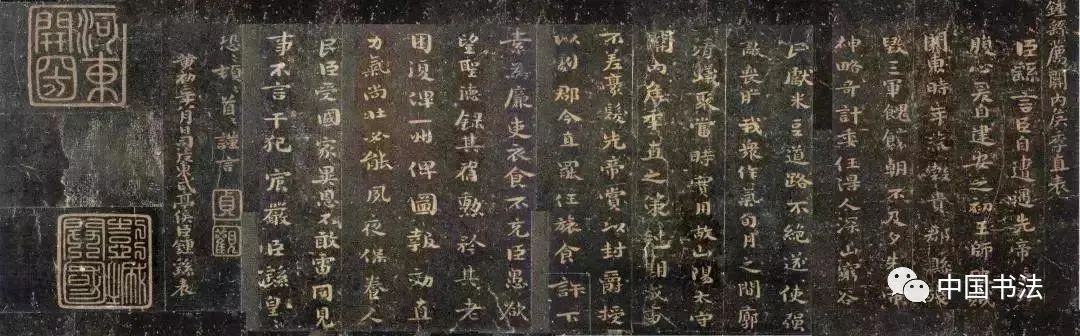 鍾繇薦關內侯季直表
臣繇言臣自遭遇先帝
腹心爰自建安之初王師
關東時年荒穀貴郡縣
毀三軍餽饟朝不及夕先
神略奇計委任得人深山窮谷
民獻米豆道路不絕遂使強
敵喪膽我眾作氣旬月之間廓
清蟻聚當時實用故山陽太守
關內侯季直之策剋期成事
不差豪髮先帝賞以封爵授
以劇郡今直罷任旅食許下
素為廉吏衣食不充臣愚欲
望聖德錄其舊勳矜其老
困復俾一州俾圖報効直
力氣尚壯必能夙夜保養人
民臣受國家異恩不敢雷同見
事不言干犯宸嚴臣繇皇
恐頓首謹言
貞觀
黃初二年八月日司徒東武亭侯臣鍾繇表
河東
中国书法